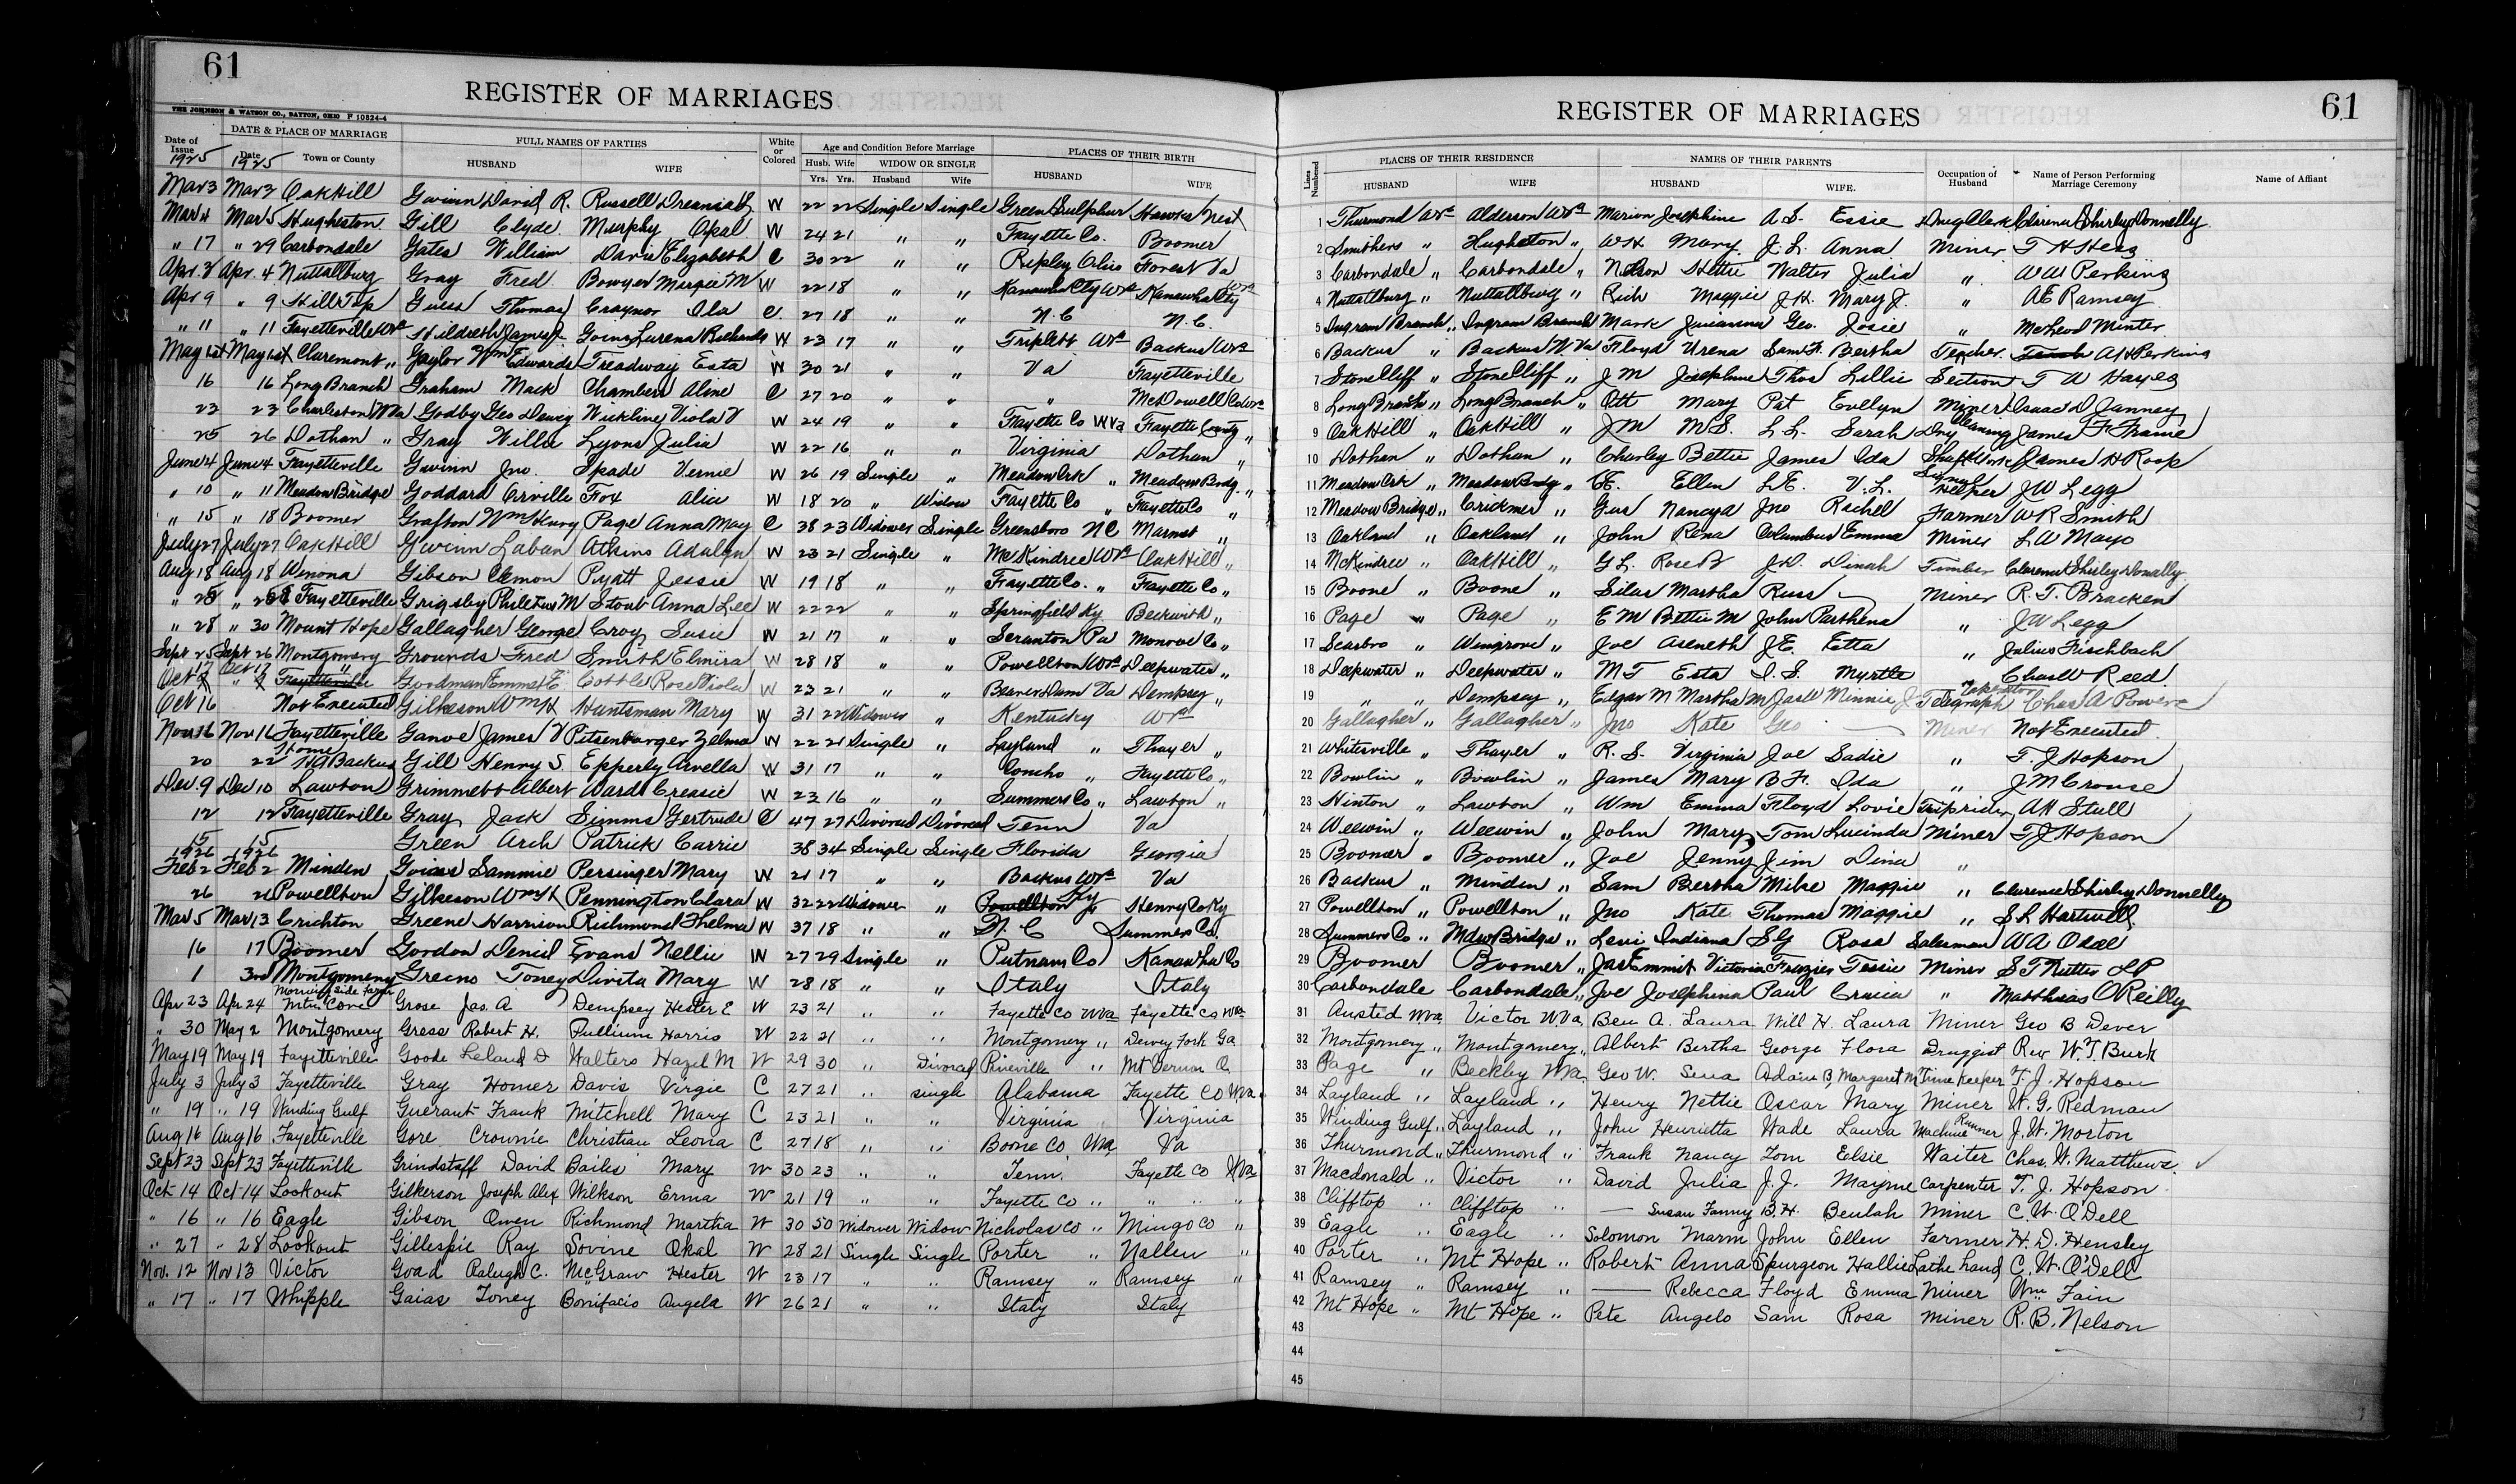 61
REGISTER OF MARRIAGES
THE JOHNSON & WATSON CO., DAYTON, OHIO F 10824-4
Date of Issue DATE & PLACE OF MARRIAGE FULL NAMES OF PARTIES White or Colored Age and Condition Before Marriage PLACES OF THEIR BIRTH
1925 Date 1925 Town or County HUSBAND WIFE Husb. Yrs. Wife Yrs. WIDOW OR SINGLE Husband Wife HUSBAND WIFE
Mar 3 Mar 3 Oak Hill Gwinn David R. Russell W 22 22 Single Single Green Sulphur Hawks Nest
Mar 4 Mar 5 Hugheston Gill Clyde Murphy Opal W 24 21 " " Fayette Co. Boomer
" 17 " 29 Carbondale Gates William Davis Elizabeth C 30 22 " " Ripley Ohio Forest Va
Apr. 3 Apr. 4 Nuttallburg Gray Fred Bowyer Margie M W 22 18 " " Kanawha Cty WVa Kanawha Cty WVa
Apr 9 " 9 Hill Top Guess Thomas Graynor Ola C. 27 18 " " N.C N.C.
" 11 " 11 Fayetteville WVa Hildreth James J. Goins Lurena W 23 17 " " Triplett WVa Backus WVa
May 1st May 1st Claremont " Gaylor Wm Edwards Treadway Esta W 30 21 " " Va Fayetteville
16 16 Long Branch Graham Mack Chambers Aline C 27 20 " " " McDowell Co WVa
23 23 Charleston WVa Godby Geo Dewey Wickline Viola V W 24 19 " " Fayette Co WVa Fayette County "
25 26 Dothan " Gray Willie Lyons Julia W 22 16 " " Virginia Dothan "
June 4 June 4 Fayetteville Gwinn Jno. Spade Vernie W 26 19 Single " Meadow Crk " Meadow Brdg. "
" 10 " 11 Meadow Bridge Goddard Orville Fox Alice W 18 20 " Widow Fayette Co " Fayette Co "
" 15 " 18 Boomer Grafton Wm Henry Page Anna May C 38 23 Widower Single Greensboro NC Marmet "
July 27 July 27 Oak Hill Gwinn Laban Atkins Adalyn W 23 21 Single " McKindree WVa Oak Hill "
Aug 18 Aug 18 Winona Gibson Clemon Pyatt Jessie W 19 18 " " Fayette Co. " Fayette Co "
" 25 " Fayetteville Grigsby Philetus M Stout Anna Lee W 22 22 " " Springfield Ky. Beckwith "
" 28 " 30 Mount Hope Gallagher George Croy Susie W 21 17 " " Scranton Pa Monroe Co "
Sept 25 Sept 26 Montgomery Grounds Fred Smith Elmira W 28 18 " " Powellton WVa Deepwater "
Oct 17 Oct 17 Fayetteville Goodman Emmet E. Cottle Rose Viola W 23 21 " " Beaver Dam Va Dempsey "
Oct 16 Not Executed Gilkeson Wm H Huntsman Mary W 31 22 Widower " Kentucky WVa
Nov 16 Nov 16 Fayetteville Ganoe James V Pitsenbarger Zelma W 22 21 Single " Layland " Thayer "
20 22 Home Backus Gill Henry S. Epperly Arvella W 31 17 " " Concho " Fayette Co "
Dec 9 Dec 10 Lawton Grimmett Albert Ward Creasie W 23 16 " " Summers Co " Lawton "
12 12 Fayetteville Gray Jack Simms Gertrude C 47 27 Divorced Divorced Tenn Va
15 15 Green Arch Patrick Carrie 38 34 Single Single Florida Georgia
1926 1926
Feb 2 Feb 2 Minden Goins Sammie Persinger Mary W 21 17 " " Backus WVa Va
26 26 Powellton Gilkeson Wm H Pennington Clara W 32 22 Widower " Powellton Ky Henry Co Ky
Mar 5 Mar 13 Crichton Greene Harrison Richmond Thelma W 37 18 " " N. C Summers Co.
16 17 Boomer Gordon Denid Evans Nellie W 27 29 Single " Putnam Co Kanawha Co
1 3rd Montgomery Greens Toney Divita Mary W 28 18 " " Italy Italy
Apr 23 Apr 24 Morning Side Farm Mtn Cove Grose Jas. A Dempsey Hester E W 23 21 " " Fayette Co WVa Fayette Co WVa
" 30 May 2 Montgomery Gross Robert H. Pullium Harris W 22 21 " " Montgomery " Dewey Fork Ga
May 19 May 19 Fayetteville Goode Leland D Walters Hazel M W 29 30 " Divorced Pineville " Mt Vernon O.
July 3 July 3 Fayetteville Gray Homer Davis Virgie C 27 21 " single Alabama Fayette Co WVa.
" 19 " 19 Winding Gulf Guerant Frank Mitchell Mary C 23 21 " " Virginia Virginia
Aug 16 Aug 16 Fayetteville Gore Crownie Christian Leona C 27 18 " " Boone Co. WVa Va
Sept 23 Sept 23 Fayetteville Grindstaff David Bailes Mary W 30 23 " " Tenn. Fayette Co WVa
Oct 14 Oct 14 Lookout Gilkerson Joseph Alex Wilkson Erma W 21 19 " " Fayette Co " " " "
" 16 " 16 Eagle Gibson Owen Richmond Martha W 30 50 Widower Widow Nicholas Co " Mingo Co "
" 27 " 28 Lookout Gillespie Ray Sovine Okal W 28 21 Single Single Porter " Nallen "
Nov. 12 Nov 13 Victor Goad Raleigh C. McGraw Hester W 23 17 " " Ramsey " Ramsey "
" 17 " 17 Whipple Gaias Toney Bonifacio Angela W 26 21 " " Italy Italy
61
REGISTER OF MARRIAGES
Lines Numbered PLACES OF THEIR RESIDENCE NAMES OF THEIR PARENTS Occupation of Husband Name of Person Performing Marriage Ceremony Name of Affiant
HUSBAND WIFE HUSBAND WIFE.
1 Thurmond WVa Alderson WVa Marion Josephine A.S. Essie Drug Clerk Clarence Shirley Donnelly
2 Smithers " Hugheston " W H Mary J. L. Anna Miner T H Hess
3 Carbondale " Carbondale " Nelson Hettie Walter Julia " W W Perkins
4 Nuttallburg " Nuttallburg " Rich Maggie J.H. Mary J. " A E Ramsey
5 Ingram Branch " Ingram Branch Mark Julianna Geo. Josie " McLeod Minter
6 Backus " Backus W.Va Floyd Urena Sam H. Bertha Teacher. A H Perkins
7 Stone Cliff " Stone Cliff " J M Josephine Thos Lillie Section T W Hayes
8 Long Branch " Long Branch " Ott Mary Pat Evelyn Miner Isaac D Janney
9 Oak Hill " Oak Hill " J M M S. L L. Sarah Dry Cleaning James F Frame
10 Dothan " Dothan " Charley Bettie James Ida James H Roop
11 Meadow Crk " Meadow Brdg " C E. Ellen L E. V. L. Helper J W Legg
12 Meadow Bridge " Crickmer " Gus Nancy a Jno Rachel Farmer W R Smith
13 Oakland " Oakland " John Rena Columbus Emma Miner L W Mayo
14 McKindree " Oak Hill " G L. Rose B J D. Dinah Timber Clarence Shirley Donnelly
15 Boone " Boone " Silas Martha Russ — Miner R. T. Bracken
16 Page " Page " E M Bettie M John Parthena " J W Legg
17 Scarbro " Wingrove " Joe Aseneth J E. Etta " Julius Frischbach
18 Deepwater " Deepwater " M T Esta I. S. Myrtle Chas W Reed
19 " " Dempsey " Edgar M Martha M Jas W Minnie J. Telegraph Operator Chas A Powers
20 Gallagher " Gallagher " Jno Kate Geo — Miner Not Executed.
21 Whitesville " Thayer " R. S. Virginia Joe Sadie " T J Hopson
22 Bowlin " Bowlin " James Mary B F. Ida " J M Crouse
23 Hinton " Lawton " Wm Emma Floyd Lovie Trip rider A H Stull
24 Weewin " Weewin " John Mary Tom Lucinda Miner T J Hopson
25 Boomer " Boomer " Joe Jenny Jim Dina "
26 Backus " Minden " Sam Bertha Mike Maggie " Clarence Shirley Donnelly
27 Powellton " Powellton " Jno Kate Thomas Maggie " S L Hartwell
28 Summers Co " Mdw Bridge " Levi Indiana S G Rosa Salesman W A Odell
29 Boomer Boomer " Jas Emmit Victoria Frazier Tessie Miner S T Nutter L P
30 Carbondale Carbondale " Joe Josephina Paul Crucia " Matthias O'Reilly
31 Ansted WVa. Victor W.Va. Ben A. Laura Will H. Laura Miner Geo B Dever
32 Montgomery " Montgomery " Albert Bertha George Flora Druggist Rev W. T. Burk
33 Page " Beckley WVa. Geo W. Sena Adam B. Margaret M Time Keeper T. J. Hopson
34 Layland " Layland " Henry Nettie Oscar Mary Miner W. G. Redman
35 Winding Gulf " Layland " John Henrietta Wade Laura Machine Runner J. W. Morton
36 Thurmond " Thurmond " Frank Nancy Tom Elsie Waiter Chas. W. Matthews. ✓
37 Macdonald " Victor " David Julia J. J. Mayme Carpenter T. J. Hopson
38 Clifftop " Clifftop " — Susan Fanny B. H. Beulah Miner C. W. O'Dell
39 Eagle " Eagle " Solomon Marm John Ellen Farmer H. D. Hensley
40 Porter " Mt Hope " Robert Anna Spurgeon Hallie Lathe hand C. W. O'Dell
41 Ramsey " Ramsey " — Rebecca Floyd Emma Miner Wm Fain
42 Mt Hope " Mt Hope " Pete Angelo Sam Rosa Miner R. B. Nelson
43
44
45